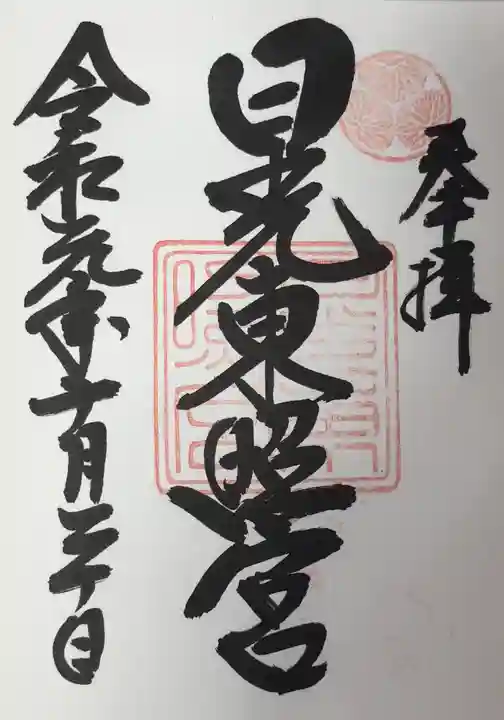 奉拝
日光東照宮
令和元年十月二十日